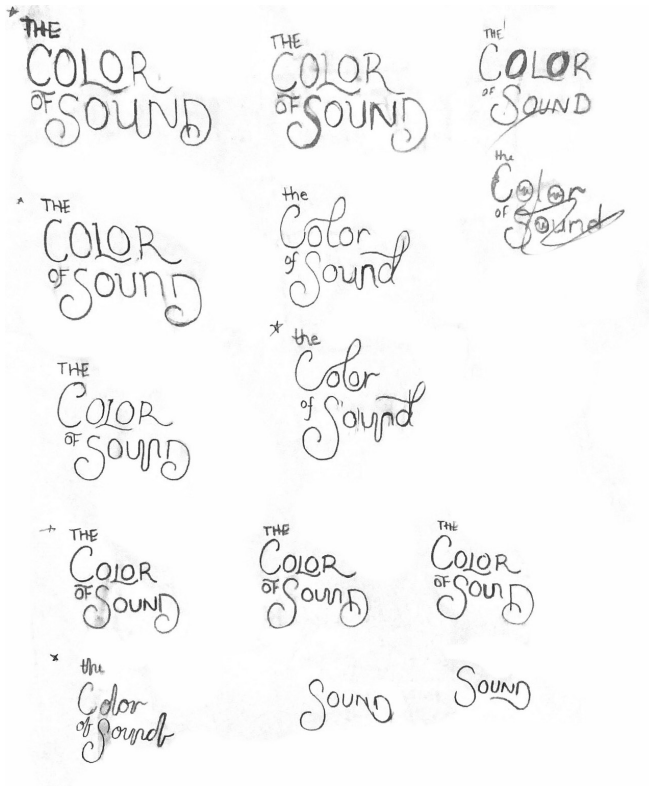 THE
COLOR
OF SOUND
THE
COLOR
OF SOUND
THE
COLOR
OF SOUND
the
Color
of Sound
THE
COLOR
OF SOUND
the
Color
of Sound
THE
COLOR
OF SOUND
the
Color
of Sound
THE
COLOR
OF SOUND
THE
COLOR
OF SOUND
THE
COLOR
OF SOUND
the
Color
of Sound
SOUND
SOUND